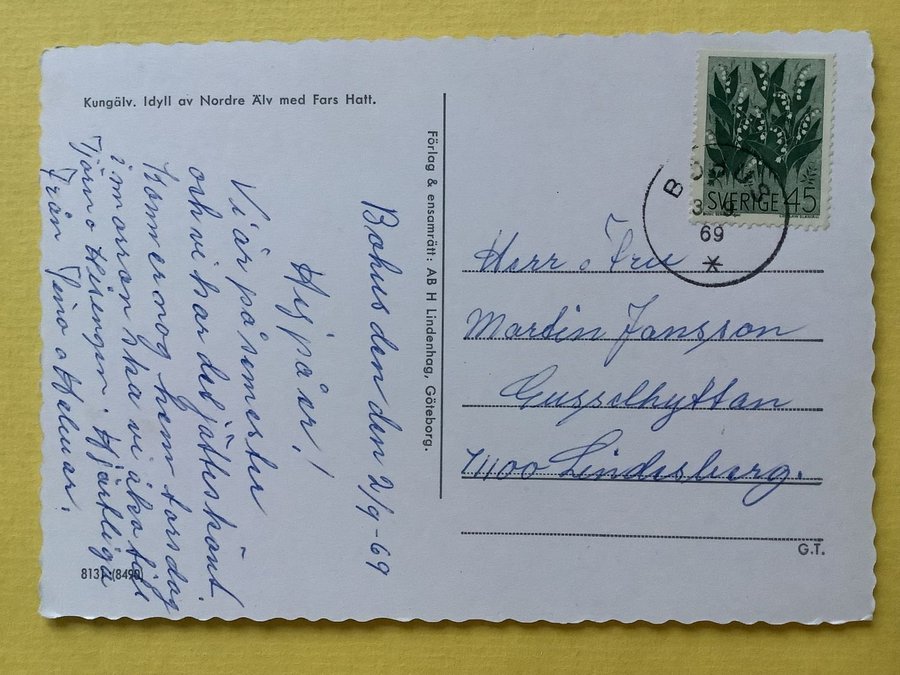 Kungälv. Idyll av Nordre Älv med Fars Hatt.
Bohus den den 2/9-69
Hej på er!
Vi är på semester
och vi har det jätteskönt.
Kommer nog hem torsdag
i morron ska vi åka till
Tjörn o Hisengen. Hjärtliga
Från Tina o Helmar.
8131 (8490)
Förlag & ensamrätt: AB H Lindenhag, Göteborg.
SVERIGE 45
69
Herr o Fru
Martin Jansson
Gusselhyttan
71100 Lindesberg.
G.T.